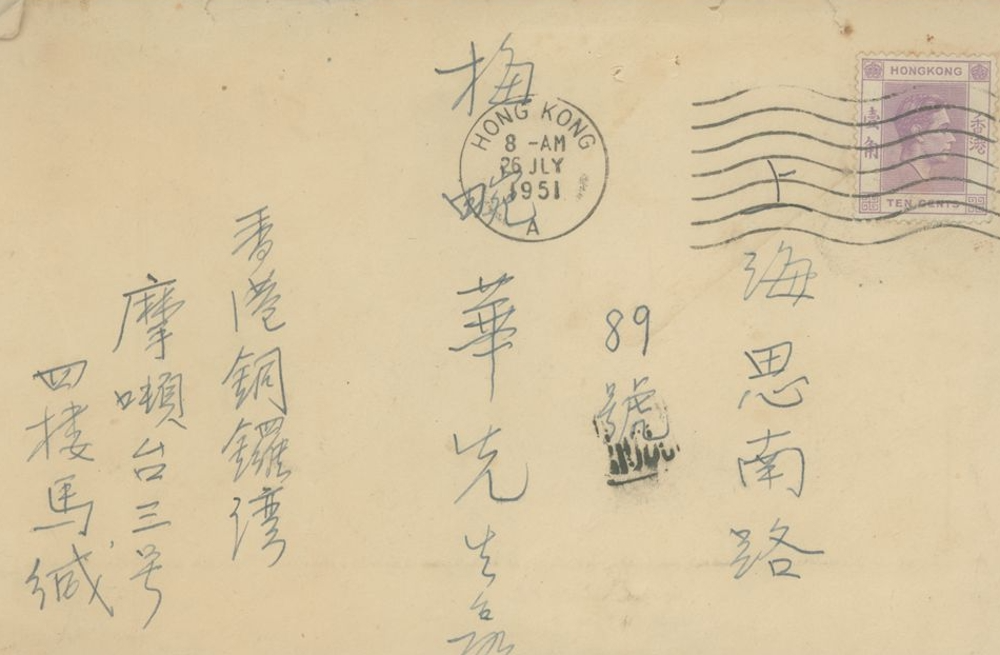 HONGKONG
香港
壹角
TEN CENTS
HONG KONG
8 -AM
26 JLY
1951
A
上海思南路
89號
梅畹華先生
香港銅鑼灣
摩噸台三号
四樓馬緘